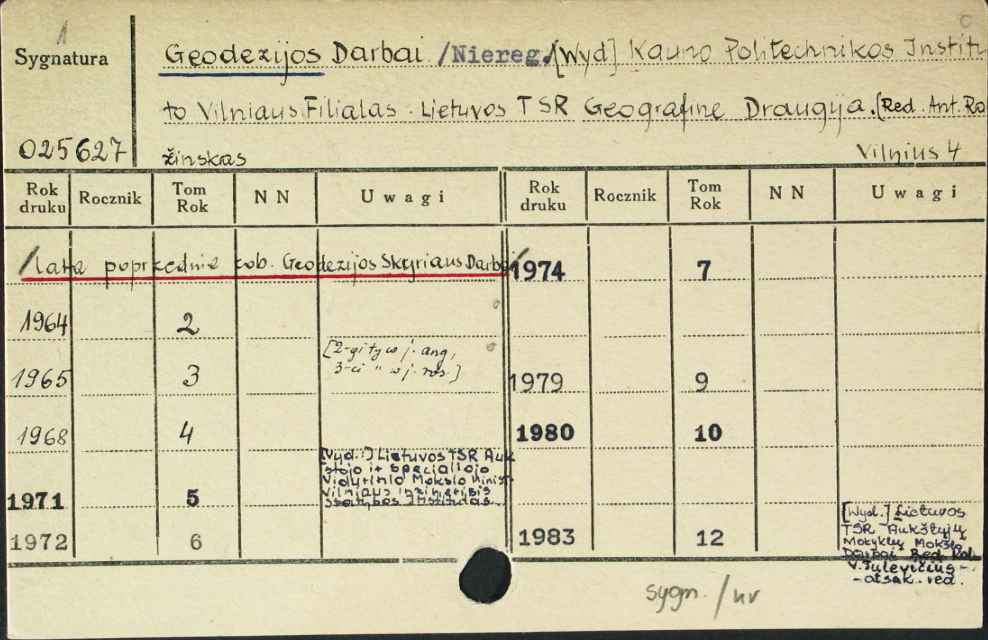 1
Sygnatura
Geodezijos Darbai /Niereg./ [Wyd] Kauno Politechnikos Institu
to Vilniaus Filialas. Lietuvos TSR Geografinė Draugija. [Red. Ant. Ra
025627
žinskas
Vilnius 4
Rok druku Rocznik Tom Rok NN Uwagi Rok druku Rocznik Tom Rok NN Uwagi
/lata poprzednie zob. Geodezijos Skyriaus Darbai/ 1974 7
1964 2
[2-gi tyt w j. ang,
1965 3 3-ci " w j. ros.] 1979 9
1968 4 1980 10
[Wyd.:] Lietuvos TSR Auk
štojo ir Specialiojo
Vidurinio Mokslo Minist
1971 5 Vilniaus inžinierinis
Statybos Institutas.
1972 6 1983 12
[Wyd.] Lietuvos
TSR Aukštųjų
Mokyklų Mokslo
Darbai Red. Kol.
- atsak. red.
sygn. / nr